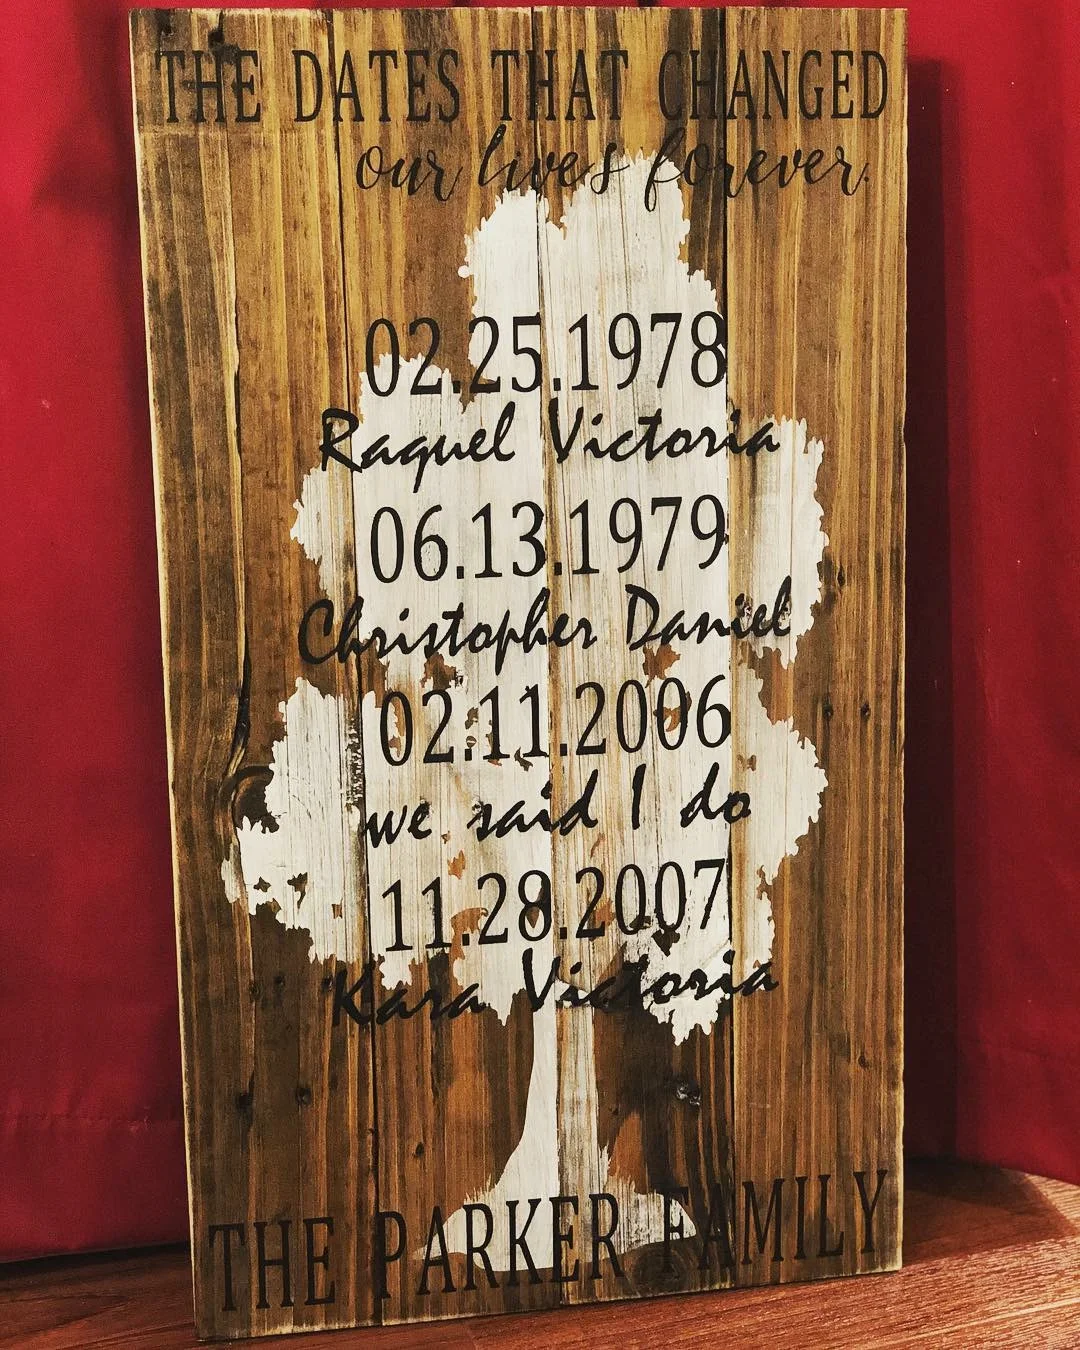 THE DATES THAT CHANGED
our lives forever.
02.25.1978
Raquel Victoria
06.13.1979
Christopher Daniel
02.11.2006
we said I do
11.28.2007
Kara Victoria
THE PARKER FAMILY